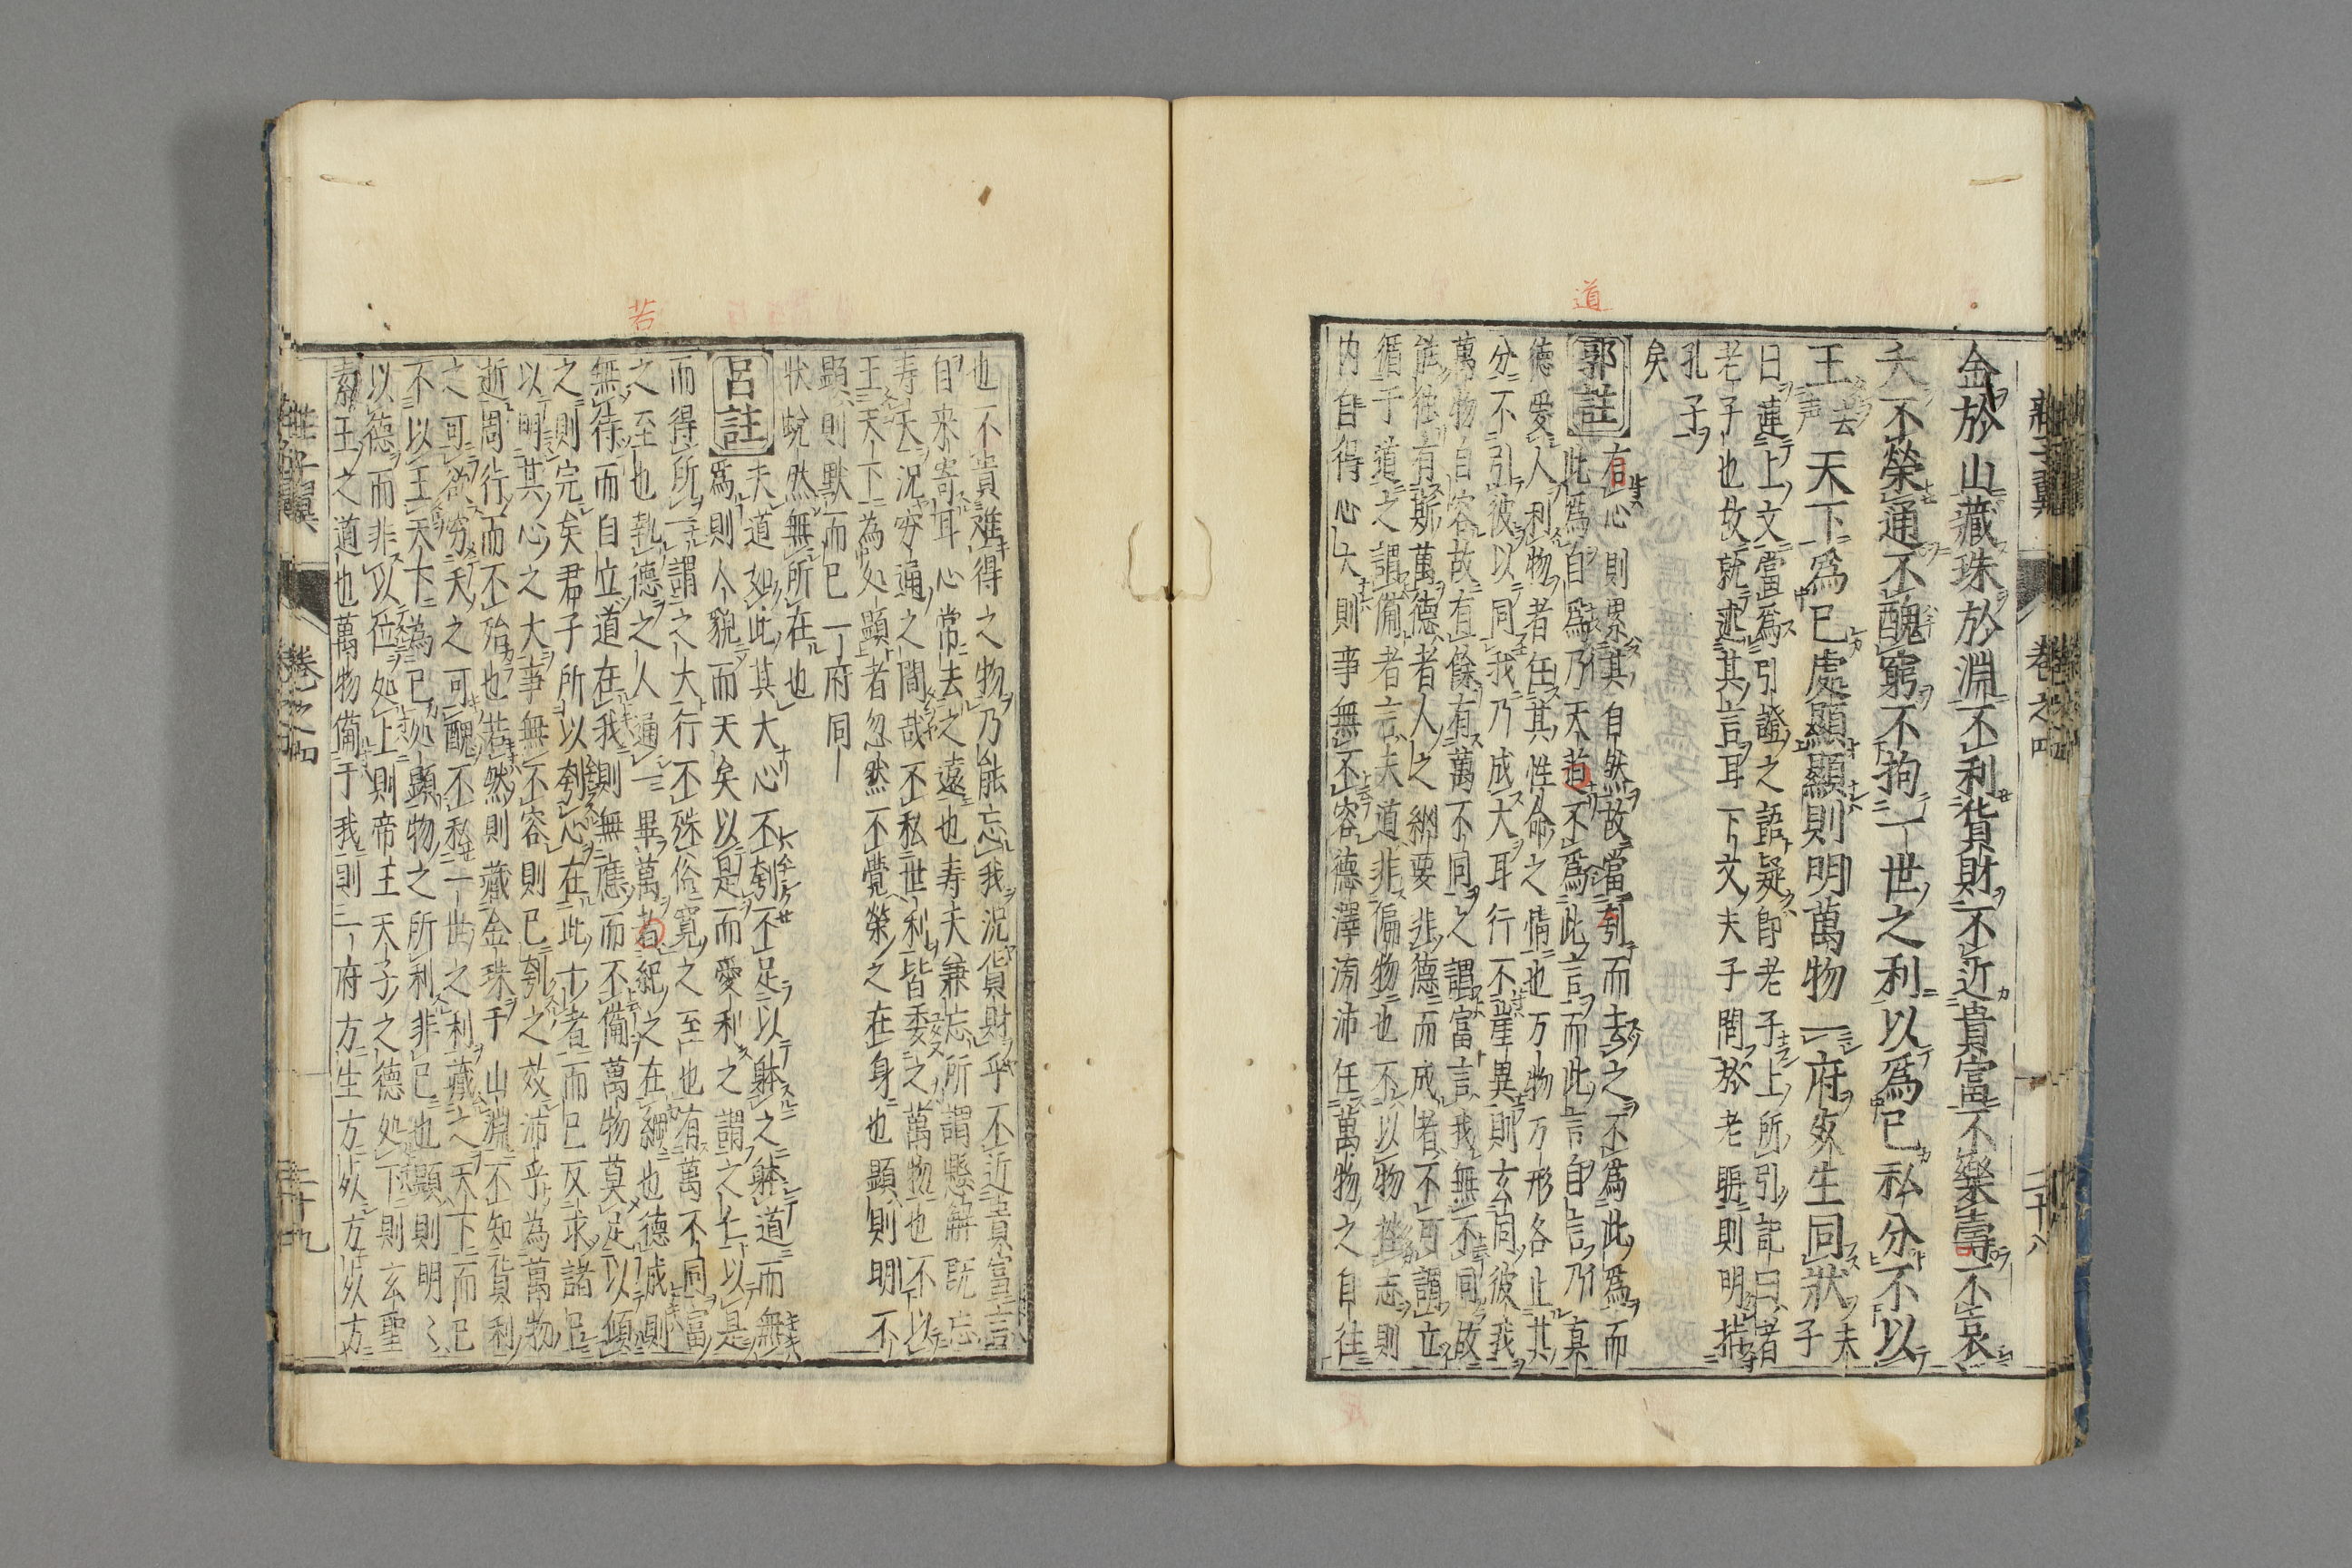 莊子翼 卷之四 二十八
金於山藏珠於淵不利貨財不近貴富不樂壽不哀
夭不榮通不醜窮不拘一世之利以爲己私分不以
王去声天下爲己處顯顯則明萬物一府死生同狀夫子
曰蓮上文當爲引證之語疑即老子上所引記曰者
老子也故就述其言耳下文夫子問於老聃則明指
孔子
矣
郭註 有心則累其自然故當刳而去之不爲此爲而
此爲自爲乃天道不爲此言而此言自言乃眞
德愛人利物者任其性命之情也万物万形各止其
分不引彼以同我乃成大耳行不崖異則玄同彼我
萬物自容故有餘有萬不同之謂富言我無不同故
能獨有斯萬德者人之綱要非德而成者不可謂立
循于道之謂備者言夫道非偏物也不以物挫志則
内自得心大則事無不容德澤滂沛任萬物之自往
也不貴難得之物乃能忘我況貨財乎不近貴富言
自来寄耳心常去之遠也寿夭兼忘所謂懸解既忘
寿夭況窮通之間哉不私世利皆委之萬物也不以
王天下為処顯者忽然不覺榮之在身也顯則明不
顕則默而已一府同
状蛻然無所在也
呂註 夫道如此其大心不刳不足以躰之躰道而無
爲則人貌而天矣以是而愛利之謂之仁以是
而得所謂之大行不殊俗寛之至也有萬不同富
之至也執德之人通一畢萬者紀之在綱也德成則
無待而自立道在我則無應而不備萬物莫足以傾
之則完矣君子所以刳心在此十者而已反求諸己
以明其心之大事無不容則已刳之效沛乎為萬物
逝周行而不殆也若然則藏金珠于山淵不知貨利
之可欲穷夭之可醜不私一世之利藏之天下而已
不以王天下為己処顯物之所利非己也顯則明〻
以德而非以位処上則帝王天子之德処下則玄聖
素王之道也萬物備于我則一府方生方死方死方
莊子翼 卷之四 二十九
道
若